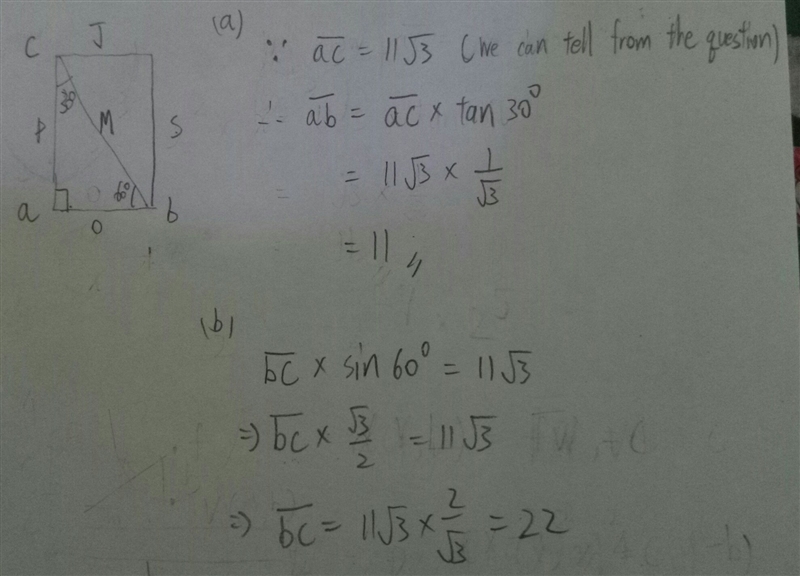 C J
30°
P M S
60°
a b
O
(a)
∵ ac̅ = 11√3 (We can tell from the question)
∴ ab̅ = ac̅ × tan 30°
= 11√3 × 1/√3
= 11
(b)
bc̅ × sin 60° = 11√3
⇒ bc̅ × √3/2 = 11√3
⇒ bc̅ = 11√3 × 2/√3 = 22